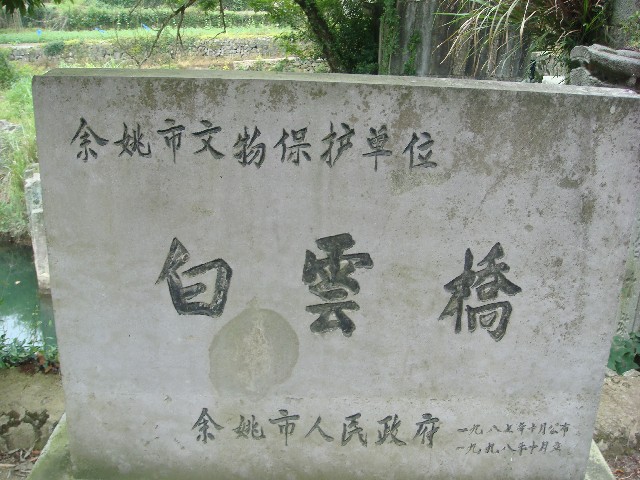 余姚市文物保护单位
白雲橋
余姚市人民政府
一九八七年十月公布
一九九八年十月立